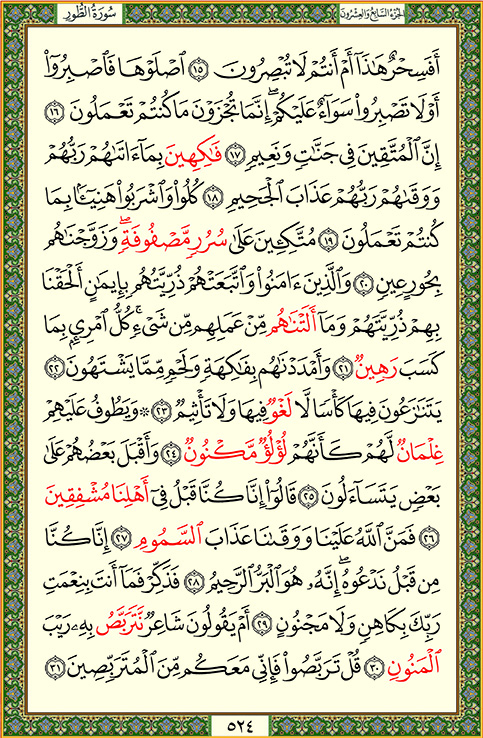 سُورَةُ الطُّورِ
الجُزْءُ السَّابِعُ وَالعِشْرُونَ
أَفَسِحْرٌ هَٰذَآ أَمْ أَنتُمْ لَا تُبْصِرُونَ ١٥ ٱصْلَوْهَا فَٱصْبِرُوٓا۟
أَوْ لَا تَصْبِرُوا۟ سَوَآءٌ عَلَيْكُمْ ۖ إِنَّمَا تُجْزَوْنَ مَا كُنتُمْ تَعْمَلُونَ ١٦
إِنَّ ٱلْمُتَّقِينَ فِى جَنَّٰتٍ وَنَعِيمٍ ١٧ فَٰكِهِينَ بِمَآ ءَاتَىٰهُمْ رَبُّهُمْ
وَوَقَىٰهُمْ رَبُّهُمْ عَذَابَ ٱلْجَحِيمِ ١٨ كُلُوا۟ وَٱشْرَبُوا۟ هَنِيٓـًٔۢا بِمَا
كُنتُمْ تَعْمَلُونَ ١٩ مُتَّكِـِٔينَ عَلَىٰ سُرُرٍ مَّصْفُوفَةٍ ۖ وَزَوَّجْنَٰهُم
بِحُورٍ عِينٍ ٢٠ وَٱلَّذِينَ ءَامَنُوا۟ وَٱتَّبَعَتْهُمْ ذُرِّيَّتُهُم بِإِيمَٰنٍ أَلْحَقْنَا
بِهِمْ ذُرِّيَّتَهُمْ وَمَآ أَلَتْنَٰهُم مِّنْ عَمَلِهِم مِّن شَىْءٍ ۚ كُلُّ ٱمْرِئٍۭ بِمَا
كَسَبَ رَهِينٌ ٢١ وَأَمْدَدْنَٰهُم بِفَٰكِهَةٍ وَلَحْمٍ مِّمَّا يَشْتَهُونَ ٢٢
يَتَنَٰزَعُونَ فِيهَا كَأْسًا لَّا لَغْوٌ فِيهَا وَلَا تَأْثِيمٌ ٢٣ ۞ وَيَطُوفُ عَلَيْهِمْ
غِلْمَانٌ لَّهُمْ كَأَنَّهُمْ لُؤْلُؤٌ مَّكْنُونٌ ٢٤ وَأَقْبَلَ بَعْضُهُمْ عَلَىٰ
بَعْضٍ يَتَسَآءَلُونَ ٢٥ قَالُوٓا۟ إِنَّا كُنَّا قَبْلُ فِىٓ أَهْلِنَا مُشْفِقِينَ
٢٦ فَمَنَّ ٱللَّهُ عَلَيْنَا وَوَقَىٰنَا عَذَابَ ٱلسَّمُومِ ٢٧ إِنَّا كُنَّا
مِن قَبْلُ نَدْعُوهُ ۖ إِنَّهُۥ هُوَ ٱلْبَرُّ ٱلرَّحِيمُ ٢٨ فَذَكِّرْ فَمَآ أَنتَ بِنِعْمَتِ
رَبِّكَ بِكَاهِنٍ وَلَا مَجْنُونٍ ٢٩ أَمْ يَقُولُونَ شَاعِرٌ نَّتَرَبَّصُ بِهِۦ رَيْبَ
ٱلْمَنُونِ ٣٠ قُلْ تَرَبَّصُوا۟ فَإِنِّى مَعَكُم مِّنَ ٱلْمُتَرَبِّصِينَ ٣١
٥٢٤